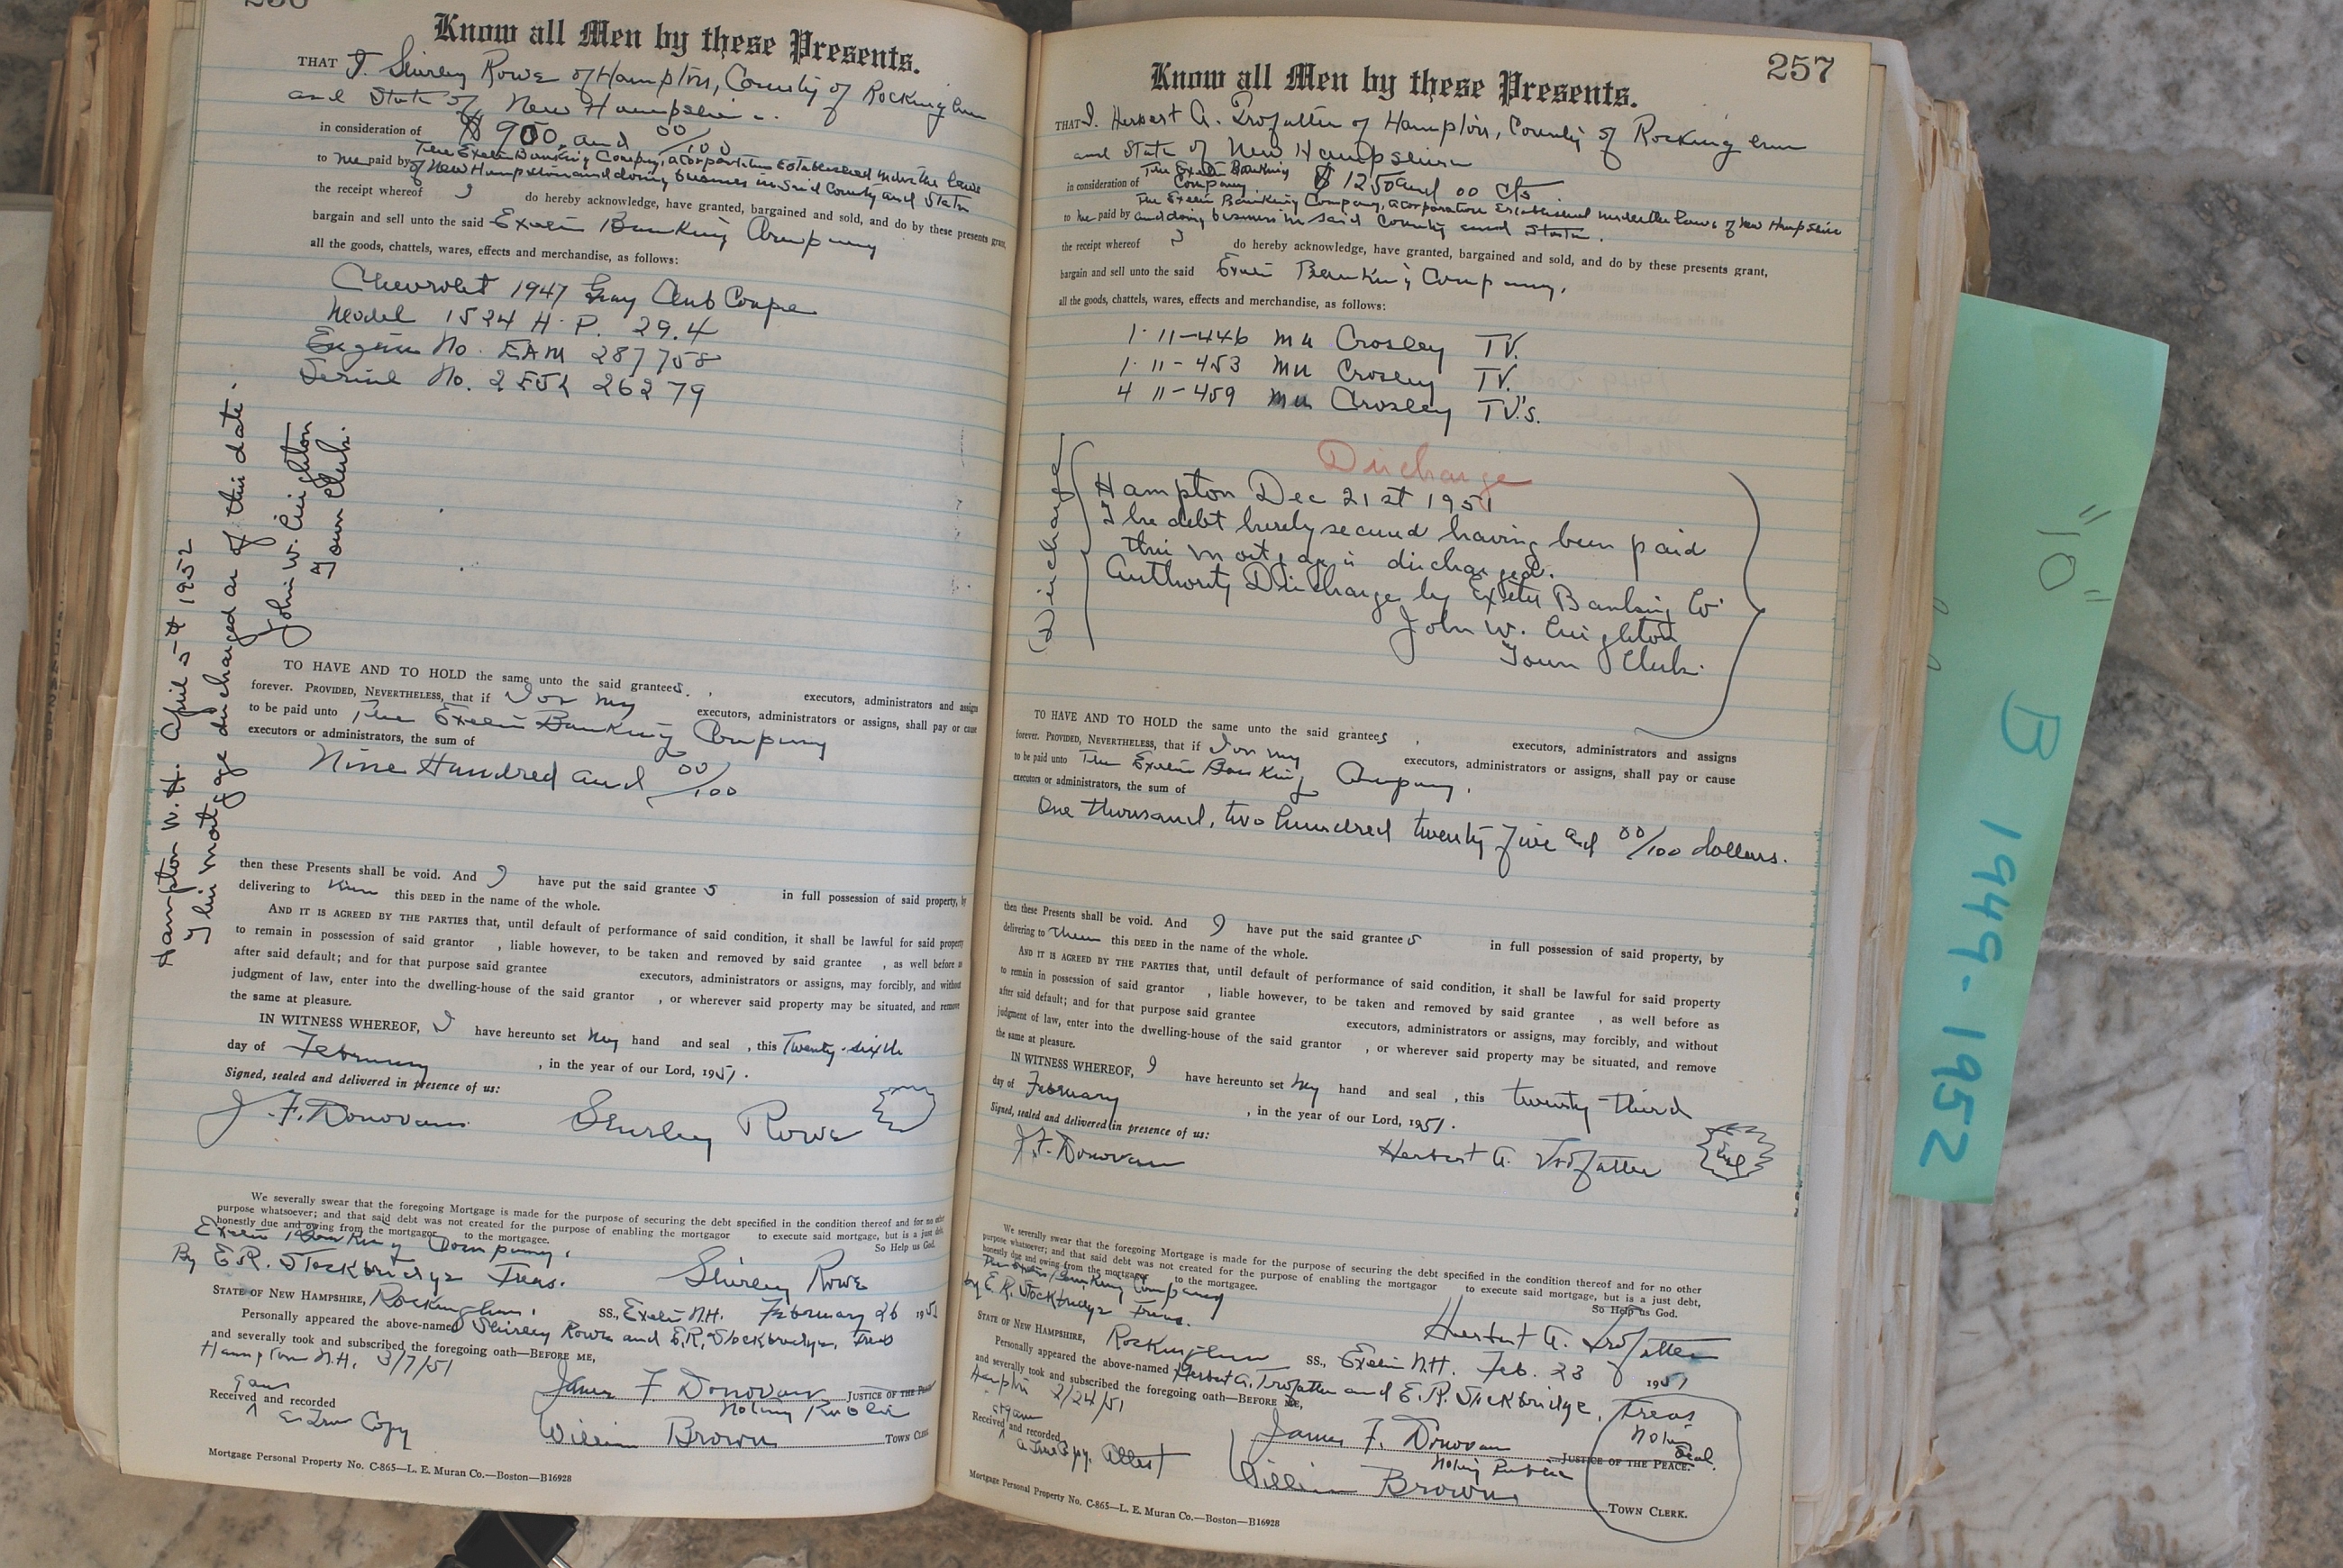 256
Know all Men by these Presents.
THAT I. Shirley Rowe of Hampton, County of Rockingham
and State of New Hampshire.
in consideration of $900. and 00/100
to me paid by The Exeter Banking Company, a corporation Established under the laws
of New Hampshire and doing business in said County and State
the receipt whereof I do hereby acknowledge, have granted, bargained and sold, and do by these presents grant,
bargain and sell unto the said Exeter Banking Company
all the goods, chattels, wares, effects and merchandise, as follows:
Chevrolet 1947 Gray Club Coupe
Model 1524 H.P. 29.4
Engine No. EAM 287758
Serial No. 26279
Hampton N.H. April 5-th 1952
This mortgage discharged as of this date.
John W. Creighton
Town Clerk.
TO HAVE AND TO HOLD the same unto the said grantees, executors, administrators and assigns
forever. PROVIDED, NEVERTHELESS, that if I or my executors, administrators or assigns, shall pay or cause
to be paid unto The Exeter Banking Company
executors or administrators, the sum of
Nine Hundred and 00/100
then these Presents shall be void. And I have put the said grantees in full possession of said property, by
delivering to him this DEED in the name of the whole.
AND IT IS AGREED BY THE PARTIES that, until default of performance of said condition, it shall be lawful for said property
to remain in possession of said grantor , liable however, to be taken and removed by said grantee , as well before as
after said default; and for that purpose said grantee executors, administrators or assigns, may forcibly, and without
judgment of law, enter into the dwelling-house of the said grantor , or wherever said property may be situated, and remove
the same at pleasure.
IN WITNESS WHEREOF, I have hereunto set my hand and seal , this Twenty-sixth
day of February , in the year of our Lord, 1951.
Signed, sealed and delivered in presence of us:
J. F. Donovan Shirley Rowe
We severally swear that the foregoing Mortgage is made for the purpose of securing the debt specified in the condition thereof and for no other
purpose whatsoever; and that said debt was not created for the purpose of enabling the mortgagor to execute said mortgage, but is a just debt,
honestly due and owing from the mortgagor to the mortgagee. So Help us God.
Exeter Banking Company,
By E.R. Stockbridge Treas. Shirley Rowe
STATE OF NEW HAMPSHIRE, Rockingham, SS., Exeter N.H. February 26 1951
Personally appeared the above-named Shirley Rowe and E.R. Stockbridge, Treas
and severally took and subscribed the foregoing oath—BEFORE ME,
Hampton N.H. 3/7/51
James F. Donovan JUSTICE OF THE PEACE
Notary Public
Received and recorded
a True Copy
William Brown TOWN CLERK
Mortgage Personal Property No. C-865—L. E. Muran Co.—Boston—B16928
257
Know all Men by these Presents.
THAT I. Herbert A. Trofatter of Hampton, County of Rockingham
and State of New Hampshire
in consideration of The Exeter Banking Company $1250 and 00 cts
to me paid by The Exeter Banking Company, a corporation Established under the laws of New Hampshire
and doing business in said County and State.
the receipt whereof I do hereby acknowledge, have granted, bargained and sold, and do by these presents grant,
bargain and sell unto the said Exeter Banking Company,
all the goods, chattels, wares, effects and merchandise, as follows:
1 11-446 mu Crosley TV.
1 11-453 mu Crosley TV.
4 11-459 mu Crosley TV's.
Discharge
Discharged
Hampton Dec 21st 1951
The debt hereby secured having been paid
this mortgage is discharged.
Authority Discharge by Exeter Banking Co
John W. Creighton
Town Clerk.
TO HAVE AND TO HOLD the same unto the said grantees, executors, administrators and assigns
forever. PROVIDED, NEVERTHELESS, that if I or my executors, administrators or assigns, shall pay or cause
to be paid unto The Exeter Banking Company,
executors or administrators, the sum of
One thousand, two hundred twenty five and 00/100 dollars.
then these Presents shall be void. And I have put the said grantees in full possession of said property, by
delivering to them this DEED in the name of the whole.
AND IT IS AGREED BY THE PARTIES that, until default of performance of said condition, it shall be lawful for said property
to remain in possession of said grantor , liable however, to be taken and removed by said grantee , as well before as
after said default; and for that purpose said grantee executors, administrators or assigns, may forcibly, and without
judgment of law, enter into the dwelling-house of the said grantor , or wherever said property may be situated, and remove
the same at pleasure.
IN WITNESS WHEREOF, I have hereunto set my hand and seal , this twenty-third
day of February , in the year of our Lord, 1951.
Signed, sealed and delivered in presence of us:
J.F. Donovan Herbert A. Trofatter Seal
We severally swear that the foregoing Mortgage is made for the purpose of securing the debt specified in the condition thereof and for no other
purpose whatsoever; and that said debt was not created for the purpose of enabling the mortgagor to execute said mortgage, but is a just debt,
honestly due and owing from the mortgagor to the mortgagee. So Help us God.
The Exeter Banking Company
by E. R. Stockbridge Treas. Herbert A. Trofatter
STATE OF NEW HAMPSHIRE, Rockingham SS., Exeter N.H. Feb. 23 1951
Personally appeared the above-named Herbert A. Trofatter and E.R. Stockbridge, Treas
and severally took and subscribed the foregoing oath—BEFORE ME,
Hampton 2/24/51
James F. Donovan JUSTICE OF THE PEACE.
Notary Public
Notary Seal.
Received and recorded
a True Copy. Attest
William Brown TOWN CLERK.
Mortgage Personal Property No. C-865—L. E. Muran Co.—Boston—B16928
"10" B 1949-1952